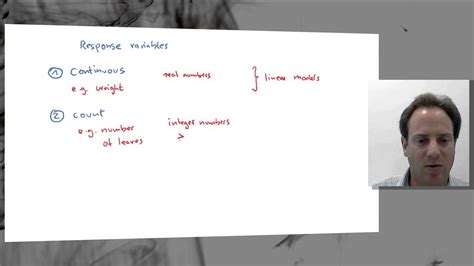 Response variables
① Continuous real numbers } linear models
e.g. weight
② count
e.g. number integer numbers
of leaves >